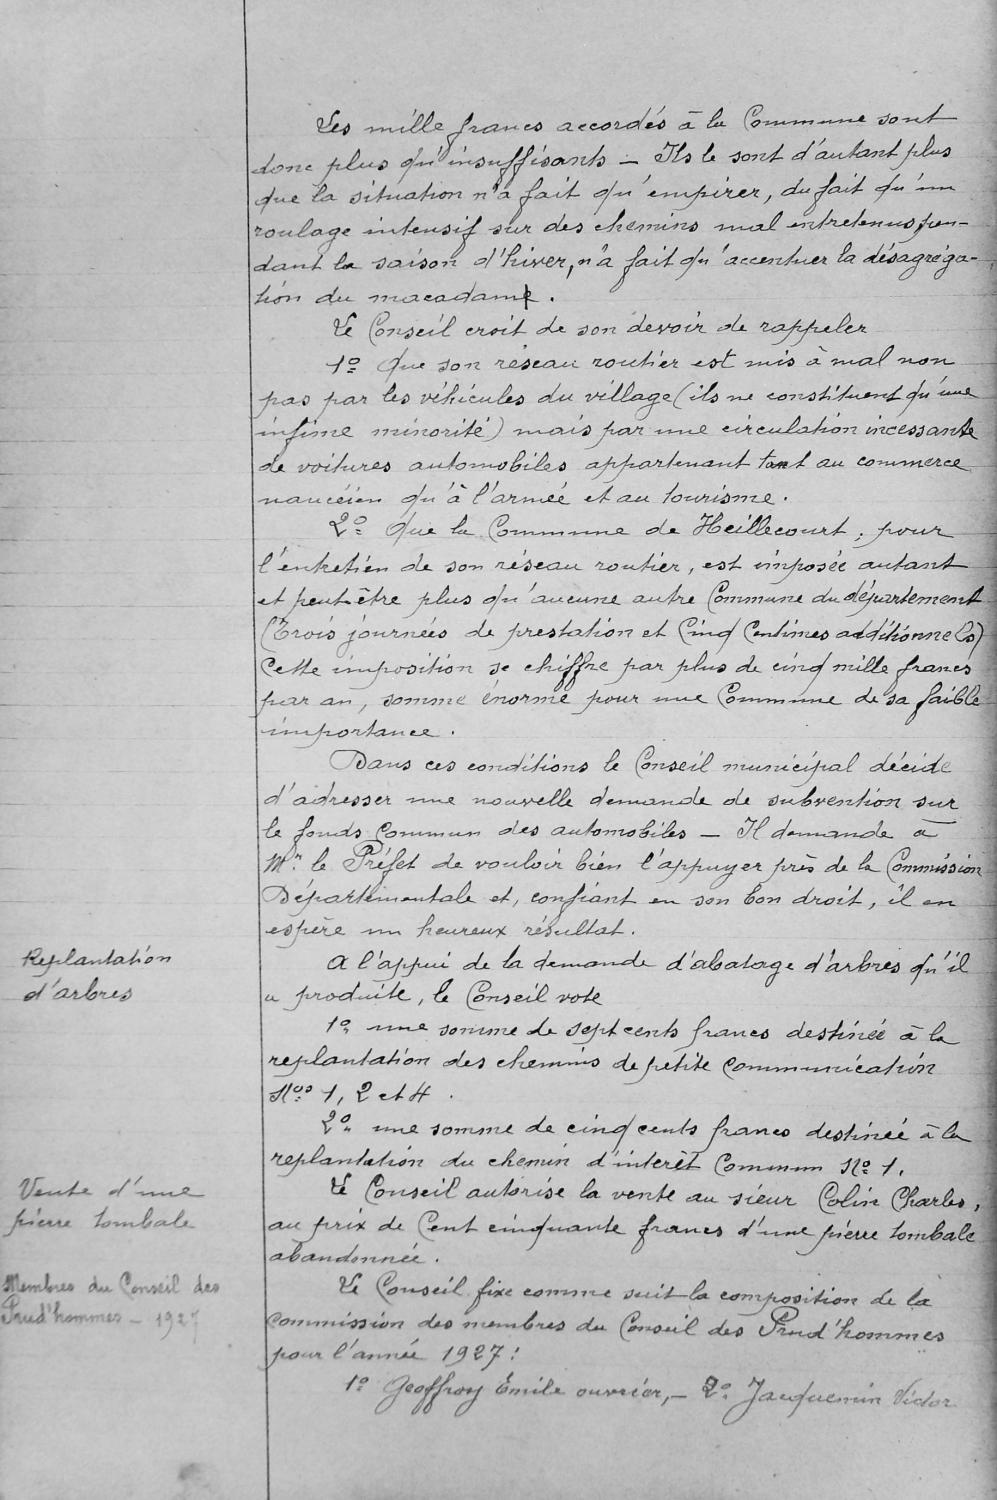 Les mille francs accordés à la Commune sont
donc plus qu'insuffisants – Ils le sont d'autant plus
que la situation n'a fait qu'empirer, du fait qu'un
roulage intensif sur des chemins mal entretenus pen-
dant la saison d'hiver, n'a fait qu'accentuer la désagréga-
tion du macadam.
Le Conseil croit de son devoir de rappeler
1º Que son réseau routier est mis à mal non
pas par les véhicules du village (ils ne constituent qu'une
infime minorité) mais par une circulation incessante
de voitures automobiles appartenant tant au commerce
nancéien qu'à l'armée et au tourisme.
2º Que la Commune de Heillecourt, pour
l'entretien de son réseau routier, est imposée autant
et peut-être plus qu'aucune autre Commune du département
(Trois journées de prestation et Cinq Centimes additionnels)
Cette imposition se chiffre par plus de cinq mille francs
par an, somme énorme pour une Commune de sa faible
importance.
Dans ces conditions le Conseil municipal décide
d'adresser une nouvelle demande de subvention sur
le fonds commun des automobiles – Il demande à
Mr. le Préfet de vouloir bien l'appuyer près de la Commission
Départementale et, confiant en son bon droit, il en
espère un heureux résultat.
Replantation
d'arbres
A l'appui de la demande d'abatage d'arbres qu'il
a produite, le Conseil vote
1º une somme de sept cents francs destinée à la
replantation des chemins de petite communication
Nos 1, 2 et 4.
2º une somme de cinq cents francs destinée à la
replantation du chemin d'intérêt commun Nº 1.
Vente d'une
pierre tombale
Le Conseil autorise la vente au sieur Colin Charles,
au prix de Cent cinquante francs d'une pierre tombale
abandonnée.
Membres du Conseil des
Prud'hommes – 1927
Le Conseil fixe comme suit la composition de la
Commission des membres du Conseil des Prud'hommes
pour l'année 1927 :
1º Geoffroy Emile ouvrier, – 2º Jacquemin Victor